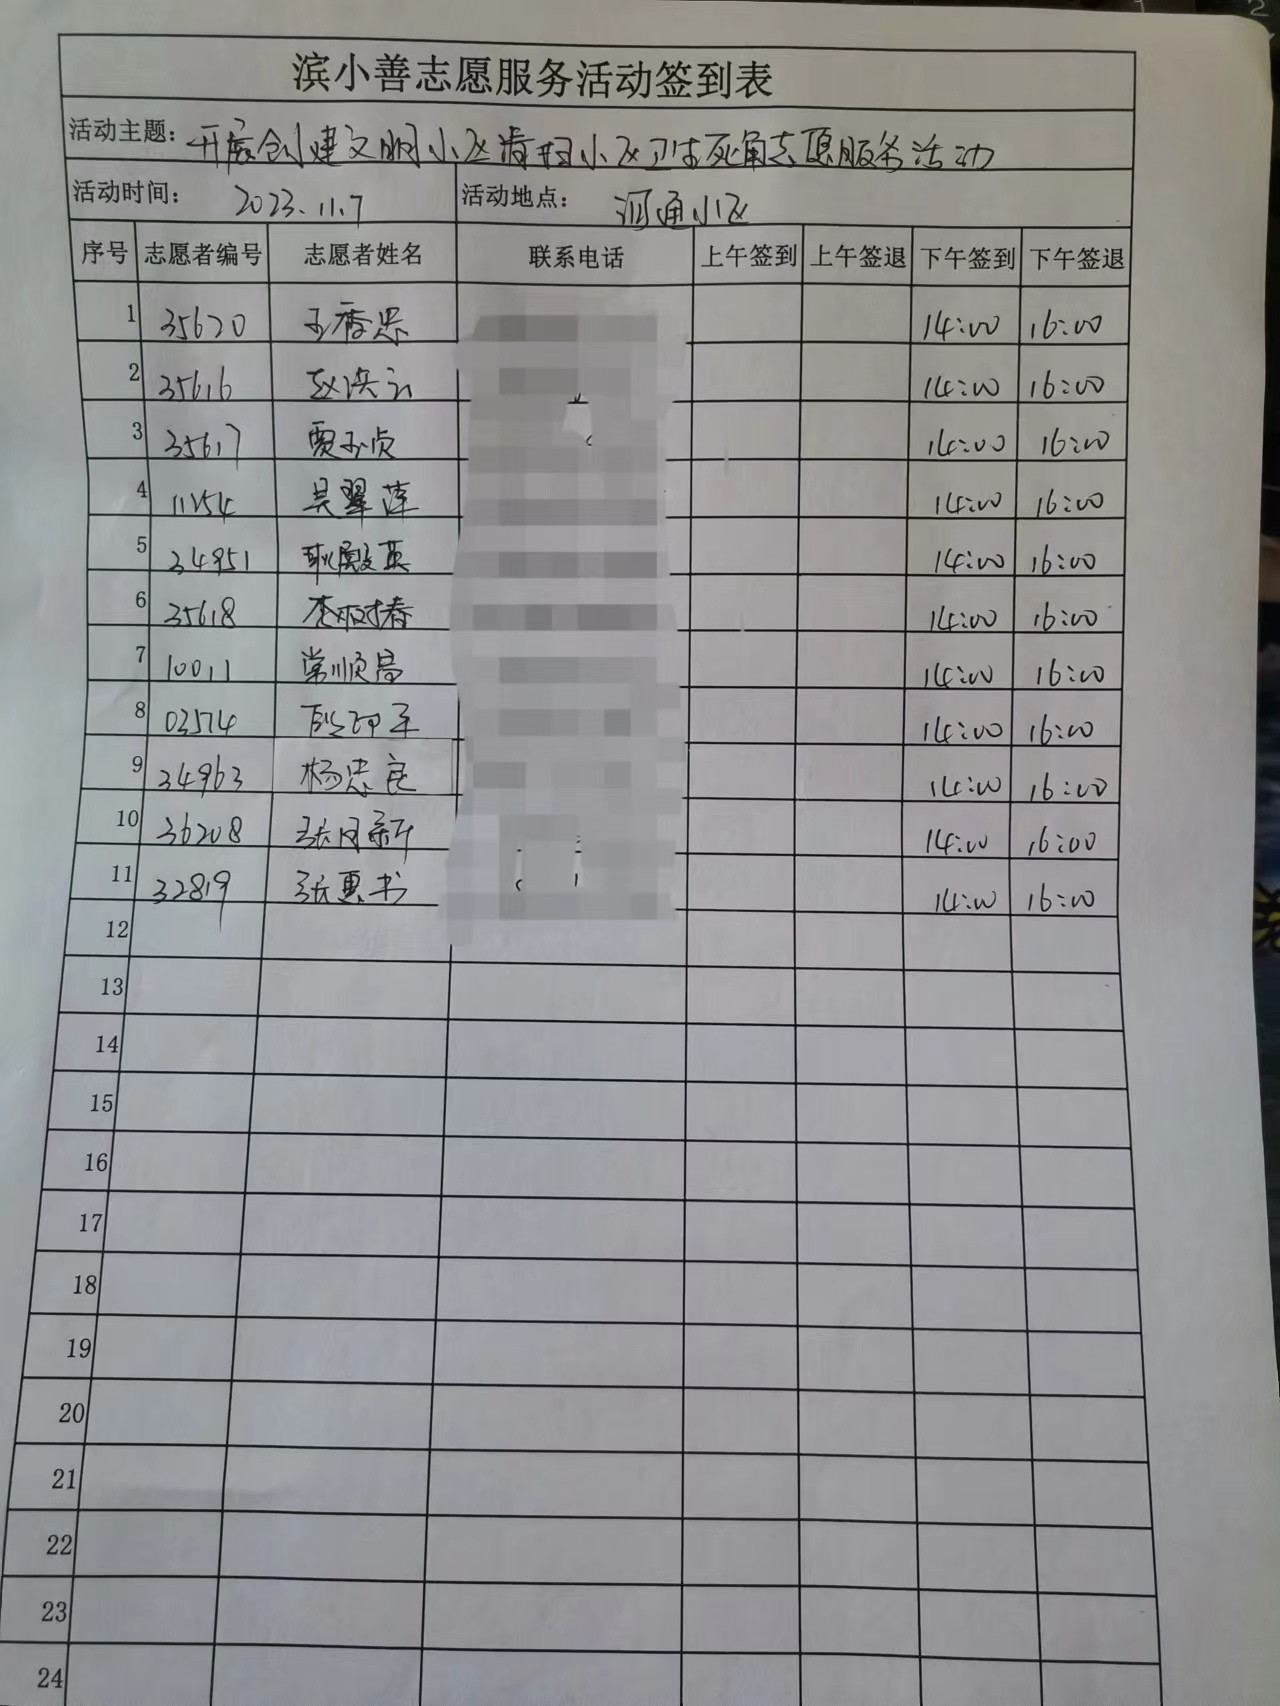 滨小善志愿服务活动签到表
活动主题：开展创建文明小区清扫小区卫生死角志愿服务活动
活动时间： 2023.11.7 活动地点： 河通小区
序号 志愿者编号 志愿者姓名 联系电话 上午签到 上午签退 下午签到 下午签退
1 35620 14:00 16:00
2 35616 赵洪云 14:00 16:00
3 35617 贾玉贞 14:00 16:00
4 11254 吴翠萍 14:00 16:00
5 34951 耿殿英 14:00 16:00
6 35618 14:00 16:00
7 10011 常顺昌 14:00 16:00
8 03574 14:00 16:00
9 34963 杨忠良 14:00 16:00
10 36208 张月新 14:00 16:00
11 32819 张惠书 14:00 16:00
12
13
14
15
16
17
18
19
20
21
22
23
24